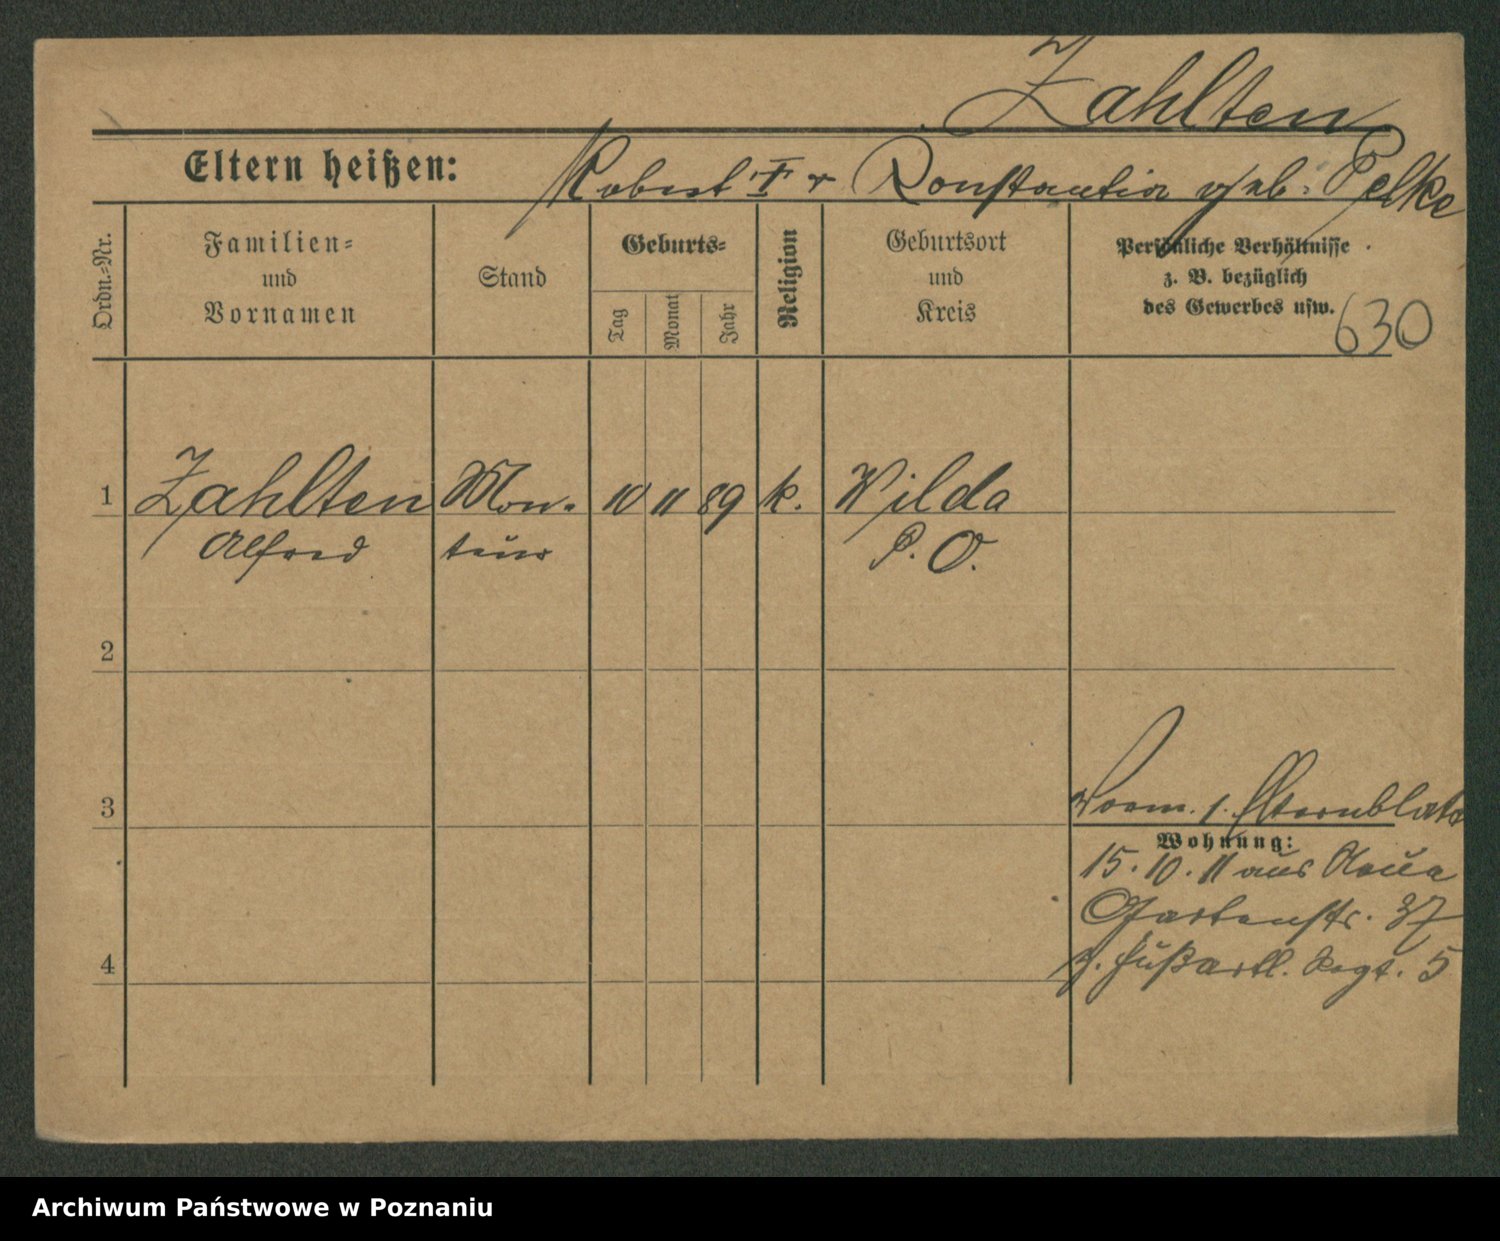 Zahlten
Eltern heißen: Robert I u Konstantia geb: Pelke
Ordn.-Nr.
Familien- und Vornamen
Stand
Geburts-
Tag
Monat
Jahr
Religion
Geburtsort und Kreis
Persönliche Verhältnisse
z. B. bezüglich
des Gewerbes usw.
630
1 Zahlten Mon- 10 11 89 k. Wilda
Alfred teur P. O.
2
3
Vorm. s. Elternblatt
Wohnung:
15. 10. 11 aus Neue
Gartenstr. 37
z. Fußartl. Regt. 5
4
Archiwum Państwowe w Poznaniu